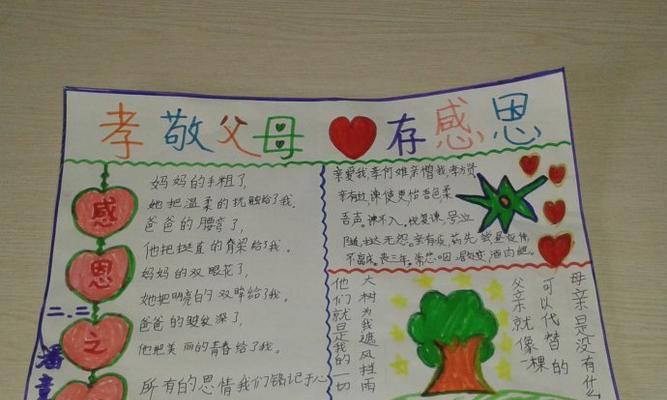 孝敬父母 存感恩
感恩之
二.二
潘
妈妈的手粗了,
她把温柔的抚触给了我。
爸爸的腰弯了,
他把挺直的脊梁给了我。
妈妈的双眼花了,
她把明亮的双眸给了我。
爸爸的皱纹深了,
他把美丽的青春给了我。
所有的恩情我们铭记于心
亲爱我,孝何难,亲憎我,孝方贤
亲有过,谏使更,怡吾色,柔
吾声。谏不入,悦复谏,号泣
随,挞无怨。亲有疾,药先尝,昼夜侍
不离床。丧三年,常悲咽,居处变,酒肉绝。
母亲是没有什么
可以代替的
父亲就像一棵
大树为我遮风挡雨
他们就是我的一切